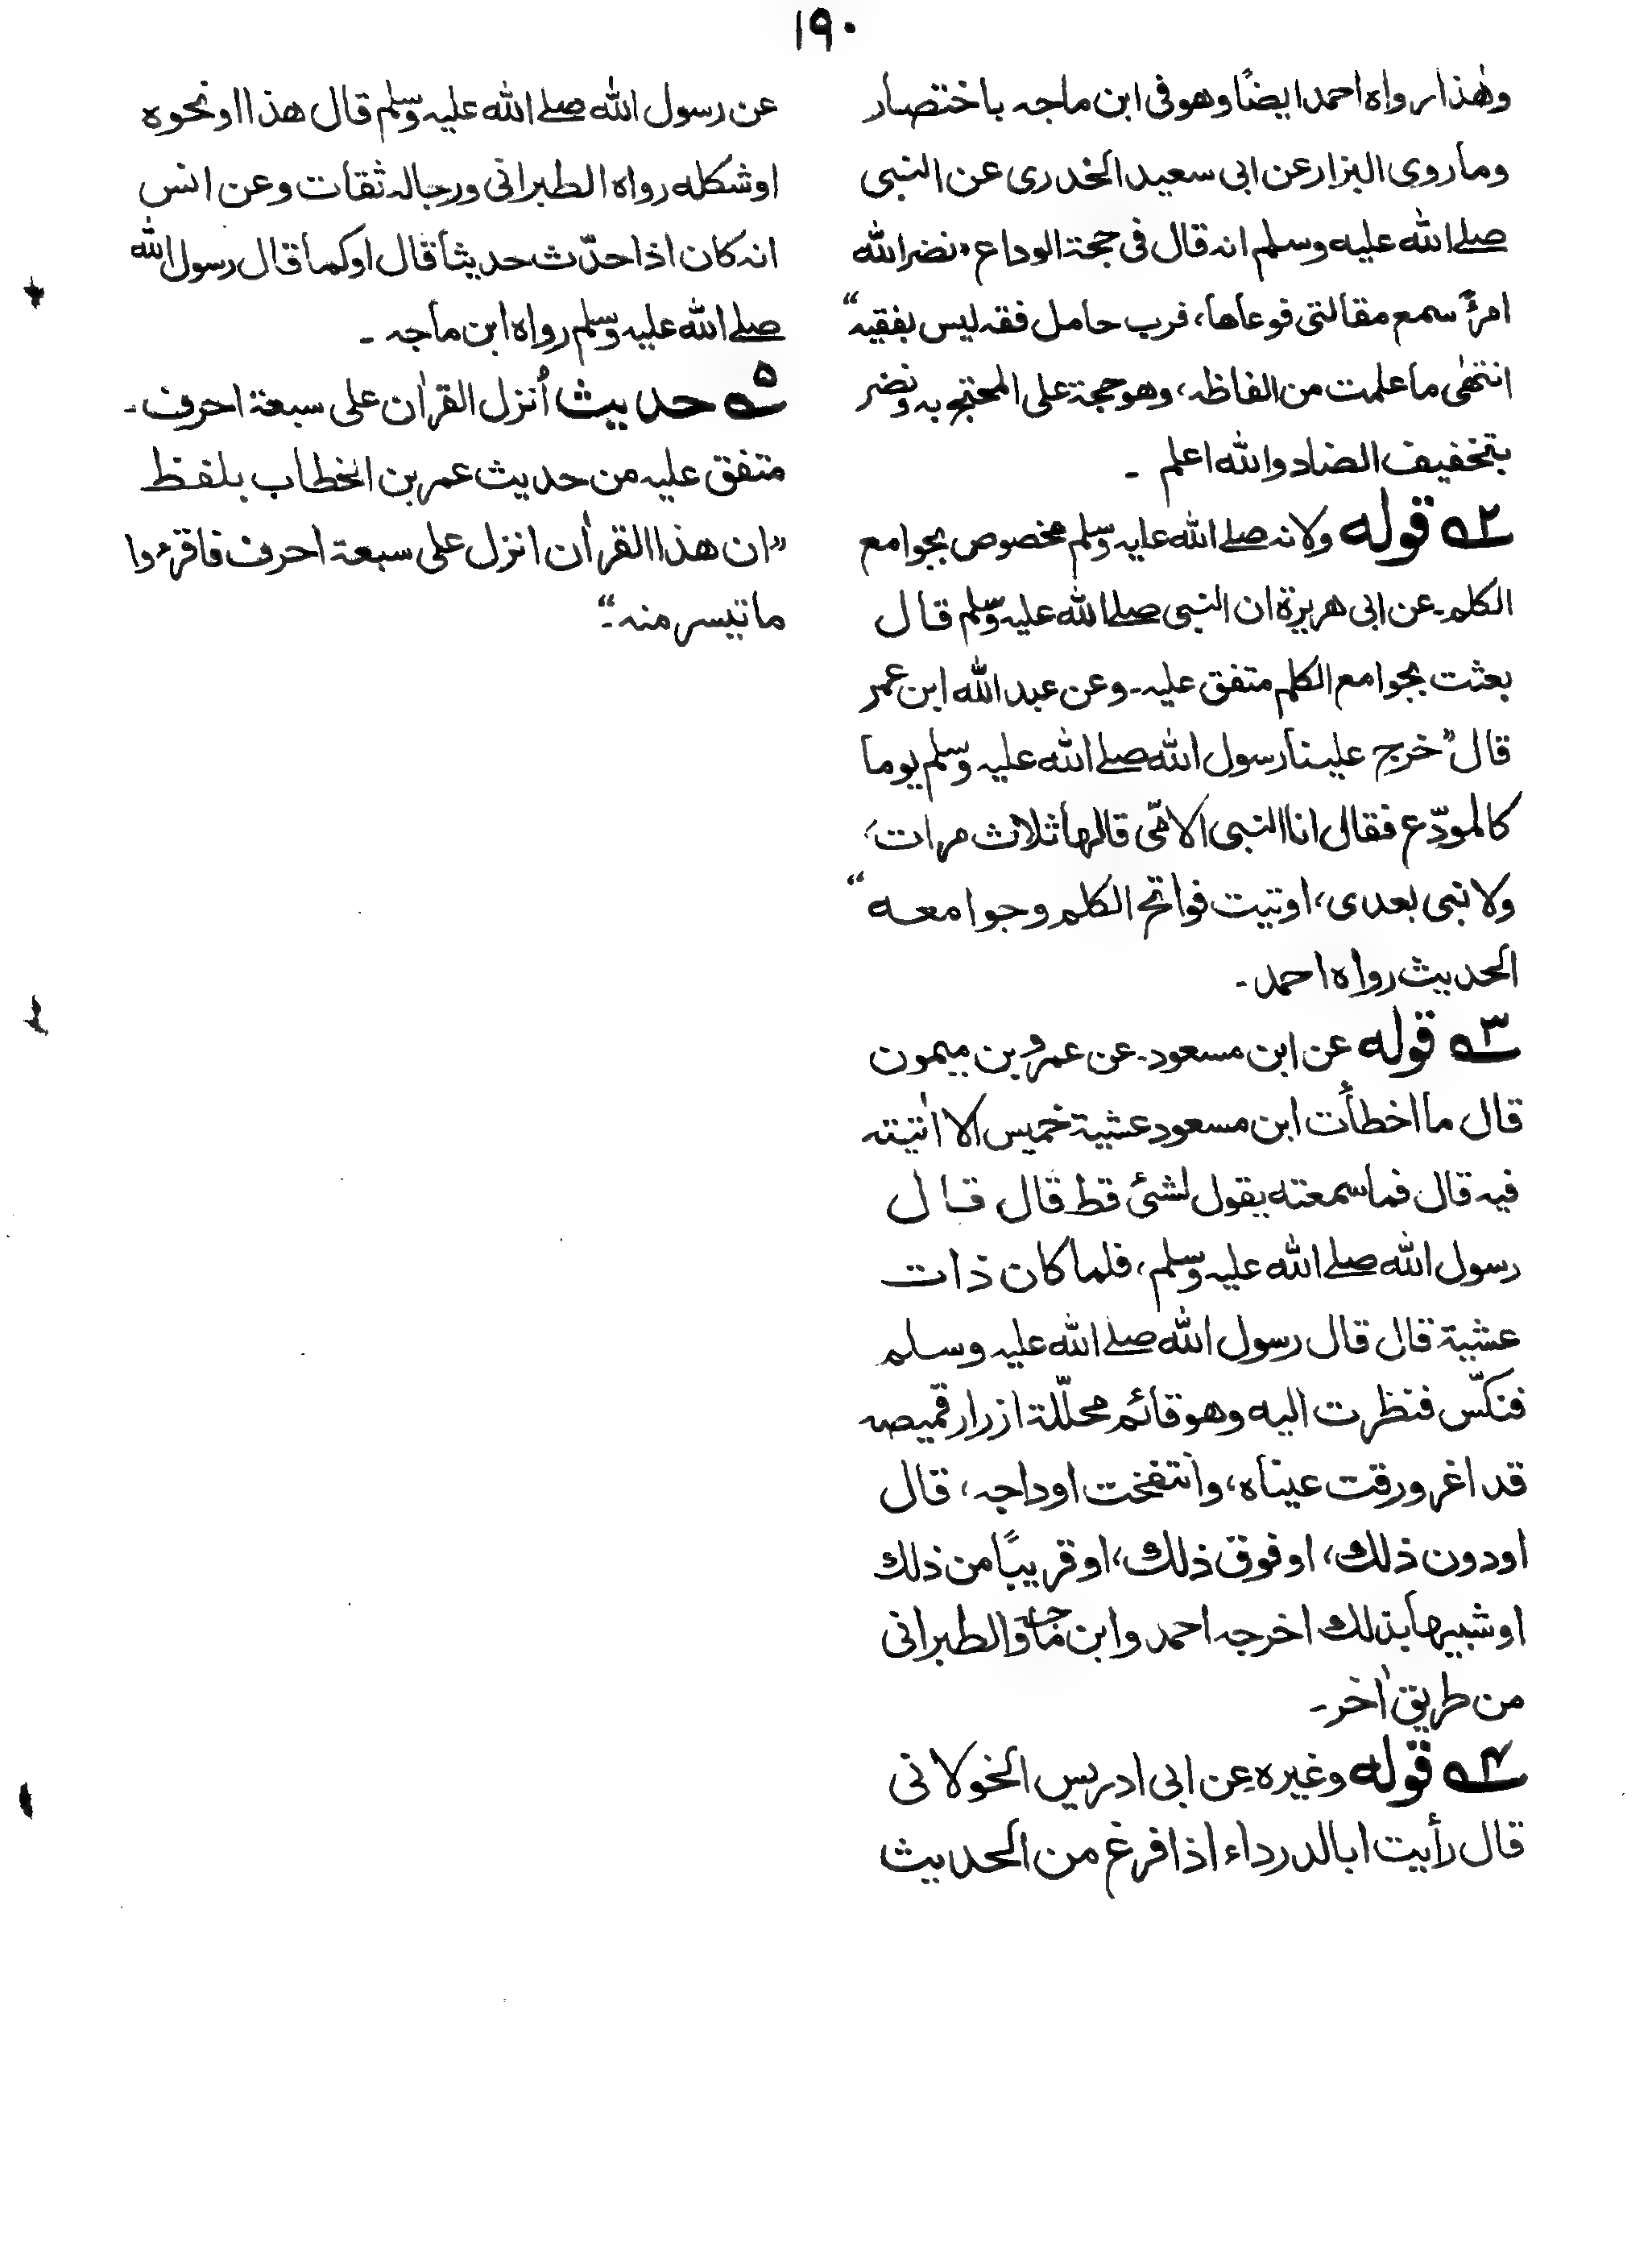 ١٩٠
وهٰذا رواه احمد ايضًا وهو فى ابن ماجه باختصار
وما روى البزار عن ابى سعيد الخدرى عن النبى
صلے الله عليه وسلم انه قال فى حجة الوداع "نضر الله
امرءً سمع مقالتى فوعاها، فرب حامل فقه ليس بفقيه"
انتهٰى ما علمت من الفاظه، وهو حجة على المحتج به ونضر
بتخفيف الضاد والله اعلم ۔
٢ے قوله ولانه صلے الله عليه وسلم مخصوص بجوامع
الكلم۔ عن ابى هريرة ان النبى صلے الله عليه وسلم قال
بعثت بجوامع الكلم متفق عليه۔ وعن عبد الله ابن عمر
قال "خرج علينا رسول الله صلے الله عليه وسلم يوما
كالمودّع فقال انا النبى الامّى قالها ثلاث مرات،
ولا نبى بعدى، اوتيت فواتح الكلم وجوامعه"
الحديث رواه احمد۔
٣ے قوله عن ابن مسعود۔ عن عمرو بن ميمون
قال ما اخطأت ابن مسعود عشية خميس الا اٰتيته
فيه قال فما سمعته يقول لشئ قط قال قال
رسول الله صلے الله عليه وسلم، فلما كان ذات
عشية قال قال رسول الله صلے الله عليه وسلم
فنكّس فنظرت اليه وهو قائم محلّلة ازرار قميصه
قد اغرورقت عيناه، وانتفخت اوداجه، قال
اودون ذلك، او فوق ذلك، او قريبًا من ذلك
او شبيها بذلك اخرجه احمد وابن ماجه والطبرانى
من طريق اٰخر۔
٤ے قوله وغيره عن ابى ادريس الخولانى
قال رأيت ابا الدرداء اذا فرغ من الحديث
عن رسول الله صلے الله عليه وسلم قال هذا او نحوه
او شكله رواه الطبرانى ورجاله ثقات وعن انس
انه كان اذا حدّث حديثا قال اوكما قال رسول الله
صلے الله عليه وسلم رواه ابن ماجه ۔
٥ے حديث اُنزل القراٰن على سبعة احرف۔
متفق عليه من حديث عمر بن الخطاب بلفظ
"ان هذا القراٰن انزل على سبعة احرف فاقرءوا
ما تيسر منه"۔